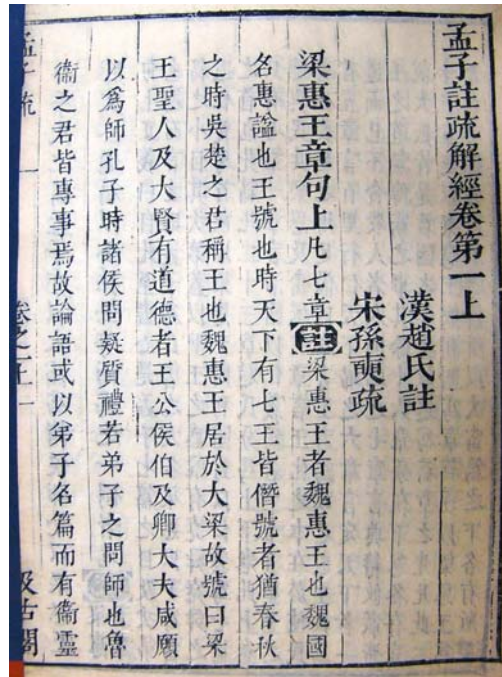 孟子註疏解經卷第一上
漢趙氏註
宋孫奭疏
梁惠王章句上凡七章註梁惠王者魏惠王也魏國
名惠謚也王號也時天下有七王皆僭號者猶春秋
之時吳楚之君稱王也魏惠王居於大梁故號曰梁
王聖人及大賢有道德者王公侯伯及卿大夫咸願
以爲師孔子時諸侯問疑質禮若弟子之問師也魯
衞之君皆專事焉故論語或以弟子名篇而有衞靈
孟子疏
卷之一上
一
汲古閣